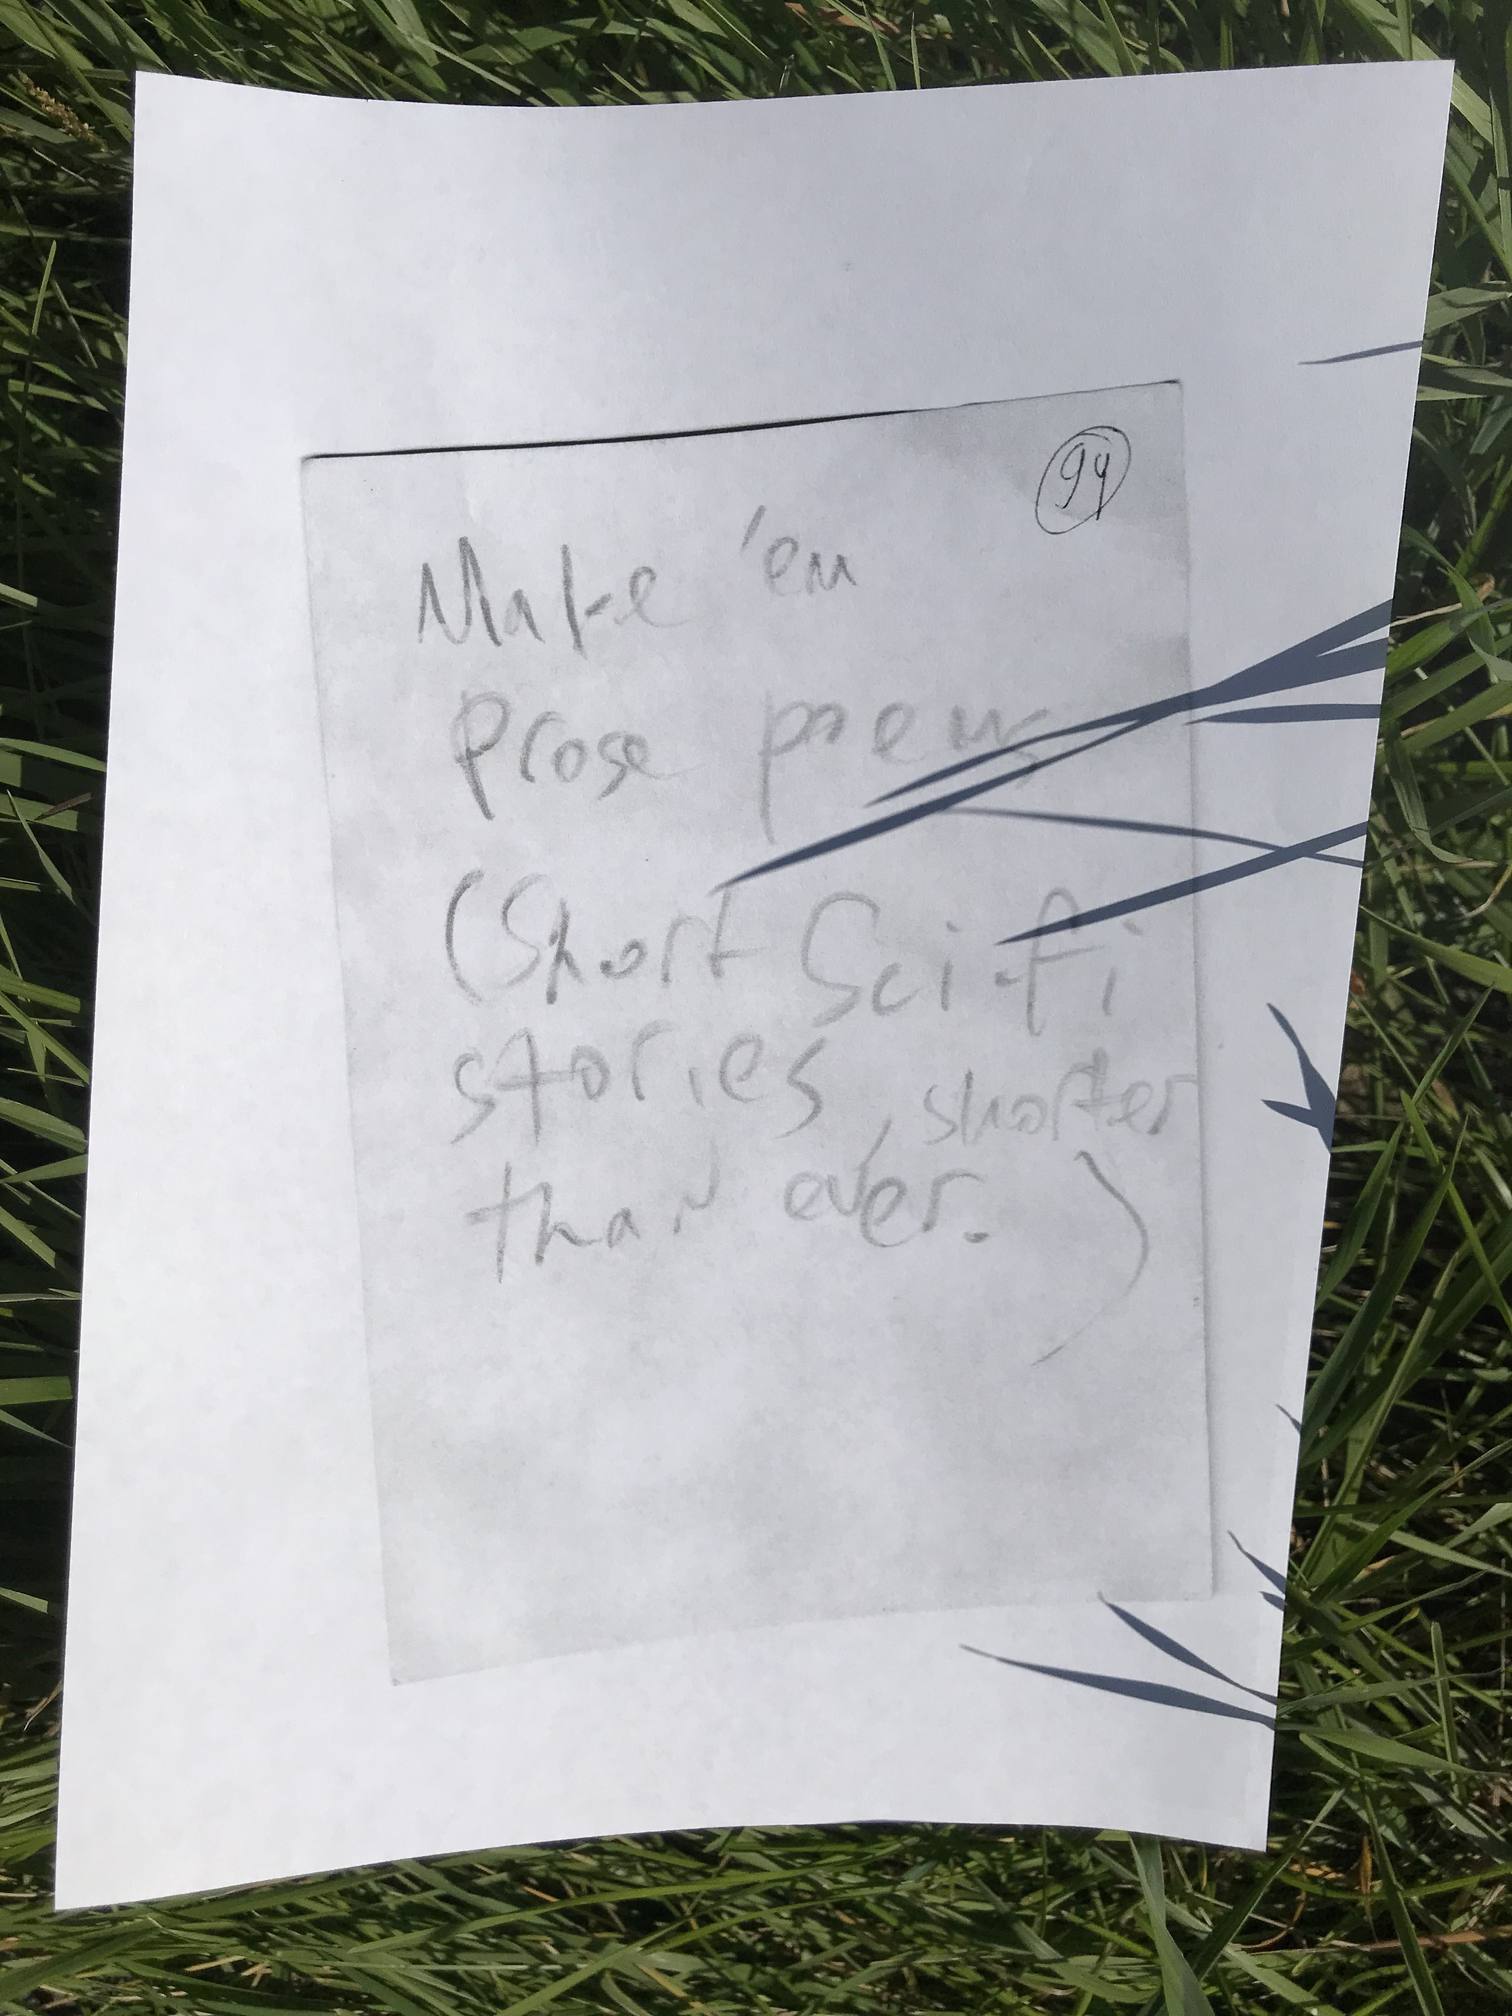 94
Make 'em
Prose poems
(Short Sci-fi
stories, shorter
than ever.)